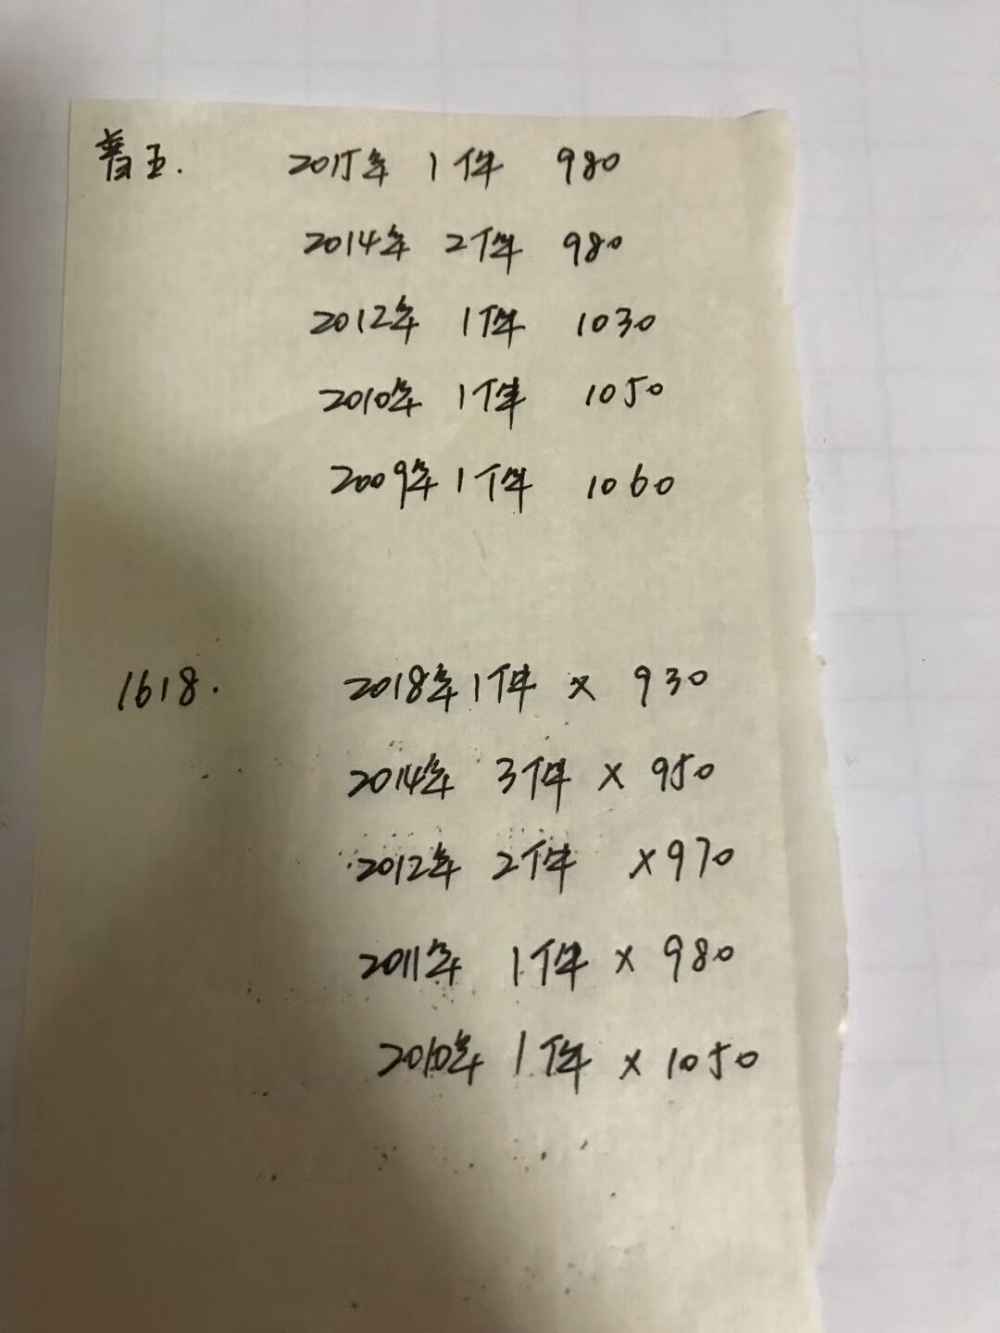 普五. 2015年 1件 980
2014年 2件 980
2012年 1件 1030
2010年 1件 1050
2009年 1件 1060
1618. 2018年 1件 x 930
2014年 3件 x 950
2012年 2件 x 970
2011年 1件 x 980
2010年 1件 x 1050